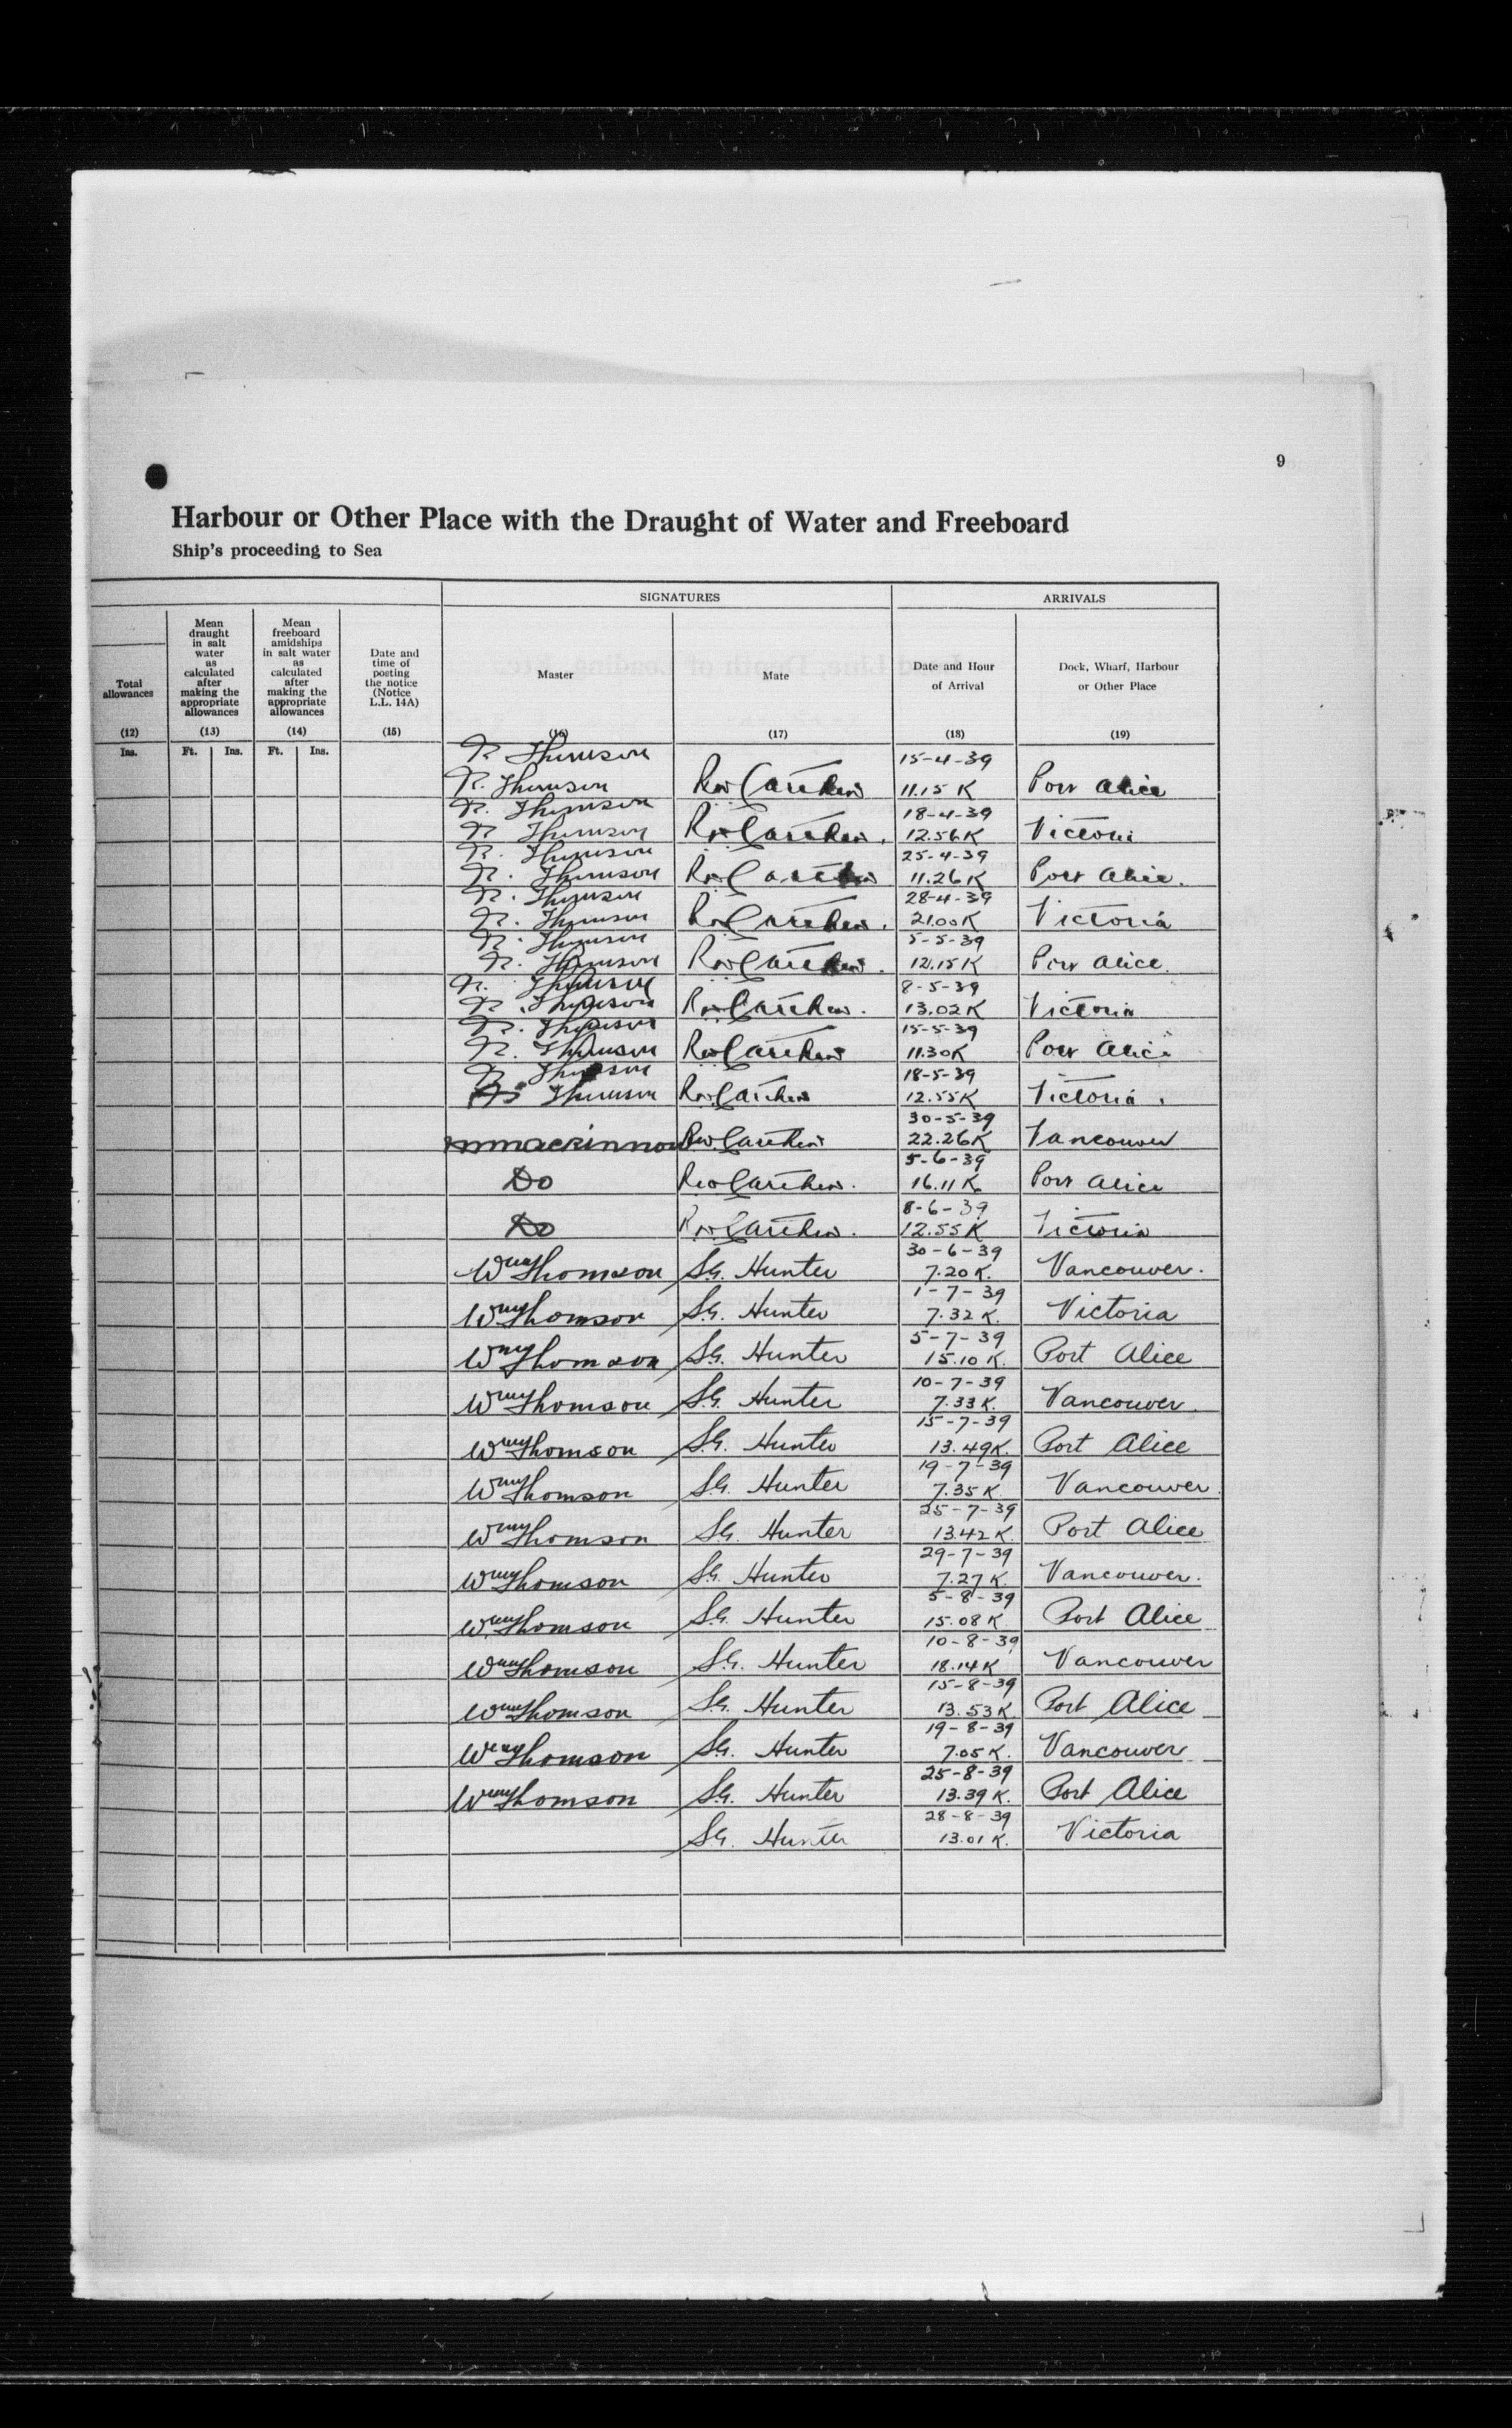 9
Harbour or Other Place with the Draught of Water and Freeboard
Ship's proceeding to Sea
SIGNATURES
ARRIVALS
Total allowances
(12)
Ins.
Mean draught in salt water as calculated after making the appropriate allowances
(13)
Ft. Ins.
Mean freeboard amidships in salt water as calculated after making the appropriate allowances
(14)
Ft. Ins.
Date and time of posting the notice (Notice L.L. 14A)
(15)
Master
(16)
Mate
(17)
Date and Hour of Arrival
(18)
Dock, Wharf, Harbour or Other Place
(19)
Thomson 15-4-39
Thomson 11.15 K Port Alice
Thomson 18-4-39
Thomson 12.56 K Victoria
Thomson 25-4-39
Thomson 11.26 K Port Alice.
Thomson 28-4-39
Thomson 21.00 K Victoria
Thomson 5-5-39
Thomson 12.15 K Port Alice.
Thomson 8-5-39
Thomson 13.02 K Victoria
Thomson 15-5-39
Thomson 11.30 K Port Alice
Thomson 18-5-39
Thomson 12.55 K Victoria.
30-5-39
mmackinnon 22.26 K Vancouver
5-6-39
Do 16.11 K Port Alice
8-6-39
Do 12.55 K Victoria
30-6-39
Wm Thomson S.G. Hunter 7.20 K. Vancouver.
1-7-39
Wm Thomson S.G. Hunter 7.32 K. Victoria
5-7-39
Wm Thomson S.G. Hunter 15.10 K. Port Alice
10-7-39
Wm Thomson S.G. Hunter 7.33 K. Vancouver.
15-7-39
Wm Thomson S.G. Hunter 13.49 K. Port Alice
19-7-39
Wm Thomson S.G. Hunter 7.35 K. Vancouver.
25-7-39
Wm Thomson S.G. Hunter 13.42 K. Port Alice
29-7-39
Wm Thomson S.G. Hunter 7.27 K. Vancouver.
5-8-39
Wm Thomson S.G. Hunter 15.08 K Port Alice
10-8-39
Wm Thomson S.G. Hunter 18.14 K Vancouver
15-8-39
Wm Thomson S.G. Hunter 13.53 K. Port Alice
19-8-39
Wm Thomson S.G. Hunter 7.05 K. Vancouver
25-8-39
Wm Thomson S.G. Hunter 13.39 K. Port Alice
28-8-39
S.G. Hunter 13.01 K. Victoria